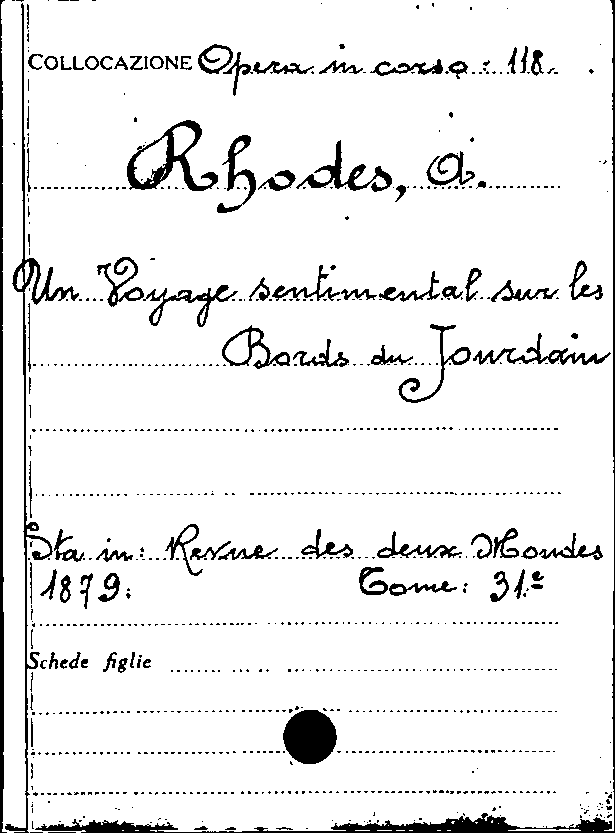 COLLOCAZIONE Opera in corso : 118.
Rhodes, A.
Un Voyage sentimental sur les
Bords du Jourdain
Sta in: Revue des deux Mondes
1879. Tome: 31.e
Schede figlie